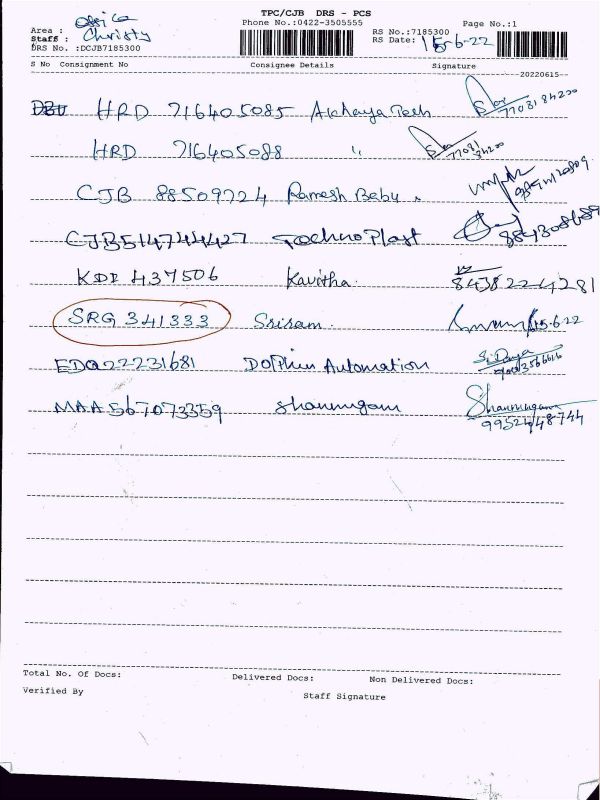 TPC/CJB DRS - PCS
Area : Office Phone No.:0422-3505555 Page No.:1
Staff : Christy RS No.:7185300
DRS No. :DCJB7185300 RS Date: 15-6-22
S No Consignment No Consignee Details Signature
20220615
HRD 716405085 Akchaya Tech 77081 84200
HRD 716405088 " 77081 84200
CJB 88509724 Ramesh Babu
CJB514744427 Techno Plast
KDI 437506 Kavitha 8438224281
SRG 341333 Sriram 15.6.22
EDQ22231681 Dolphin Automation
MAA567073359 Shanmugam Shanmugam
9952448744
Total No. Of Docs: Delivered Docs: Non Delivered Docs:
Verified By Staff Signature